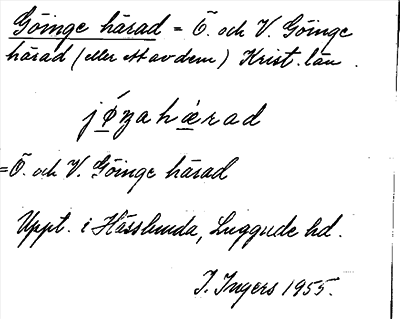 Göinge härad = Ö. och V. Göinge
härad (eller ett av dem) Krist. län.
jǿŋahǽrad
= Ö. och V. Göinge härad
Uppt. i Hässlunda, Luggude hd.
I. Ingers 1955.